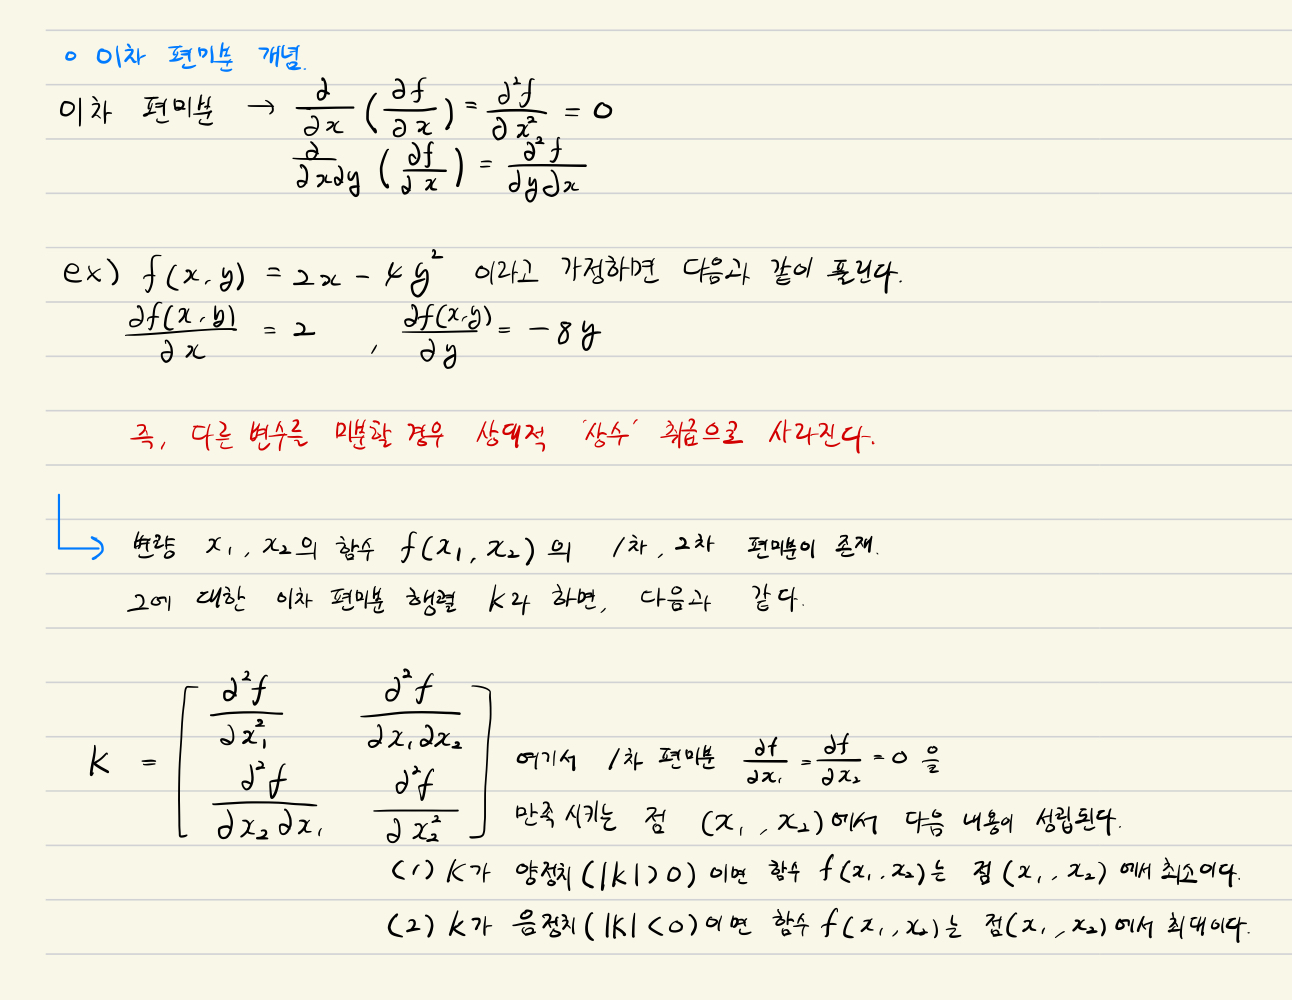 o 이차 편미분 개념.
이차 편미분 → ∂/∂x (∂f/∂x) = ∂²f/∂x² = 0
∂/∂x∂y (∂f/∂x) = ∂²f/∂y∂x
ex) f(x,y) = 2x - 4y² 이라고 가정하면 다음과 같이 풀린다.
∂f(x,y)/∂x = 2 , ∂f(x,y)/∂y = -8y
즉, 다른 변수를 미분할 경우 상대적 '상수' 취급으로 사라진다.
변량 x₁, x₂의 함수 f(x₁, x₂)의 1차, 2차 편미분이 존재.
그에 대한 이차 편미분 행렬 K라 하면, 다음과 같다.
K = [ ∂²f/∂x₁² ∂²f/∂x₁∂x₂
∂²f/∂x₂∂x₁ ∂²f/∂x₂² ]
여기서 1차 편미분 ∂f/∂x₁ = ∂f/∂x₂ = 0 을
만족 시키는 점 (x₁, x₂)에서 다음 내용이 성립된다.
(1) K가 양정치(|K|>0) 이면 함수 f(x₁, x₂)는 점 (x₁, x₂) 에서 최소이다.
(2) K가 음정치(|K|<0)이면 함수 f(x₁, x₂)는 점(x₁, x₂)에서 최대이다.